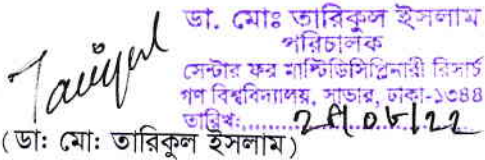 ডা. মোঃ তারিকুল ইসলাম
পরিচালক
সেন্টার ফর মাল্টিডিসিপ্লিনারী রিসার্চ
গণ বিশ্ববিদ্যালয়, সাভার, ঢাকা-১৩৪৪
তারিখ:
(ডা: মো: তারিকুল ইসলাম)